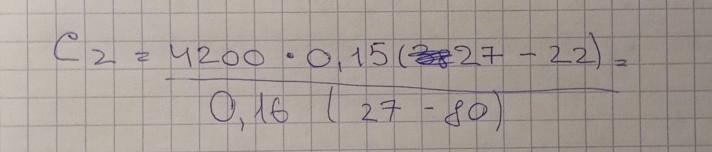 C2 = 4200 · 0,15(27 - 22) =
0,16 (27 - 80)